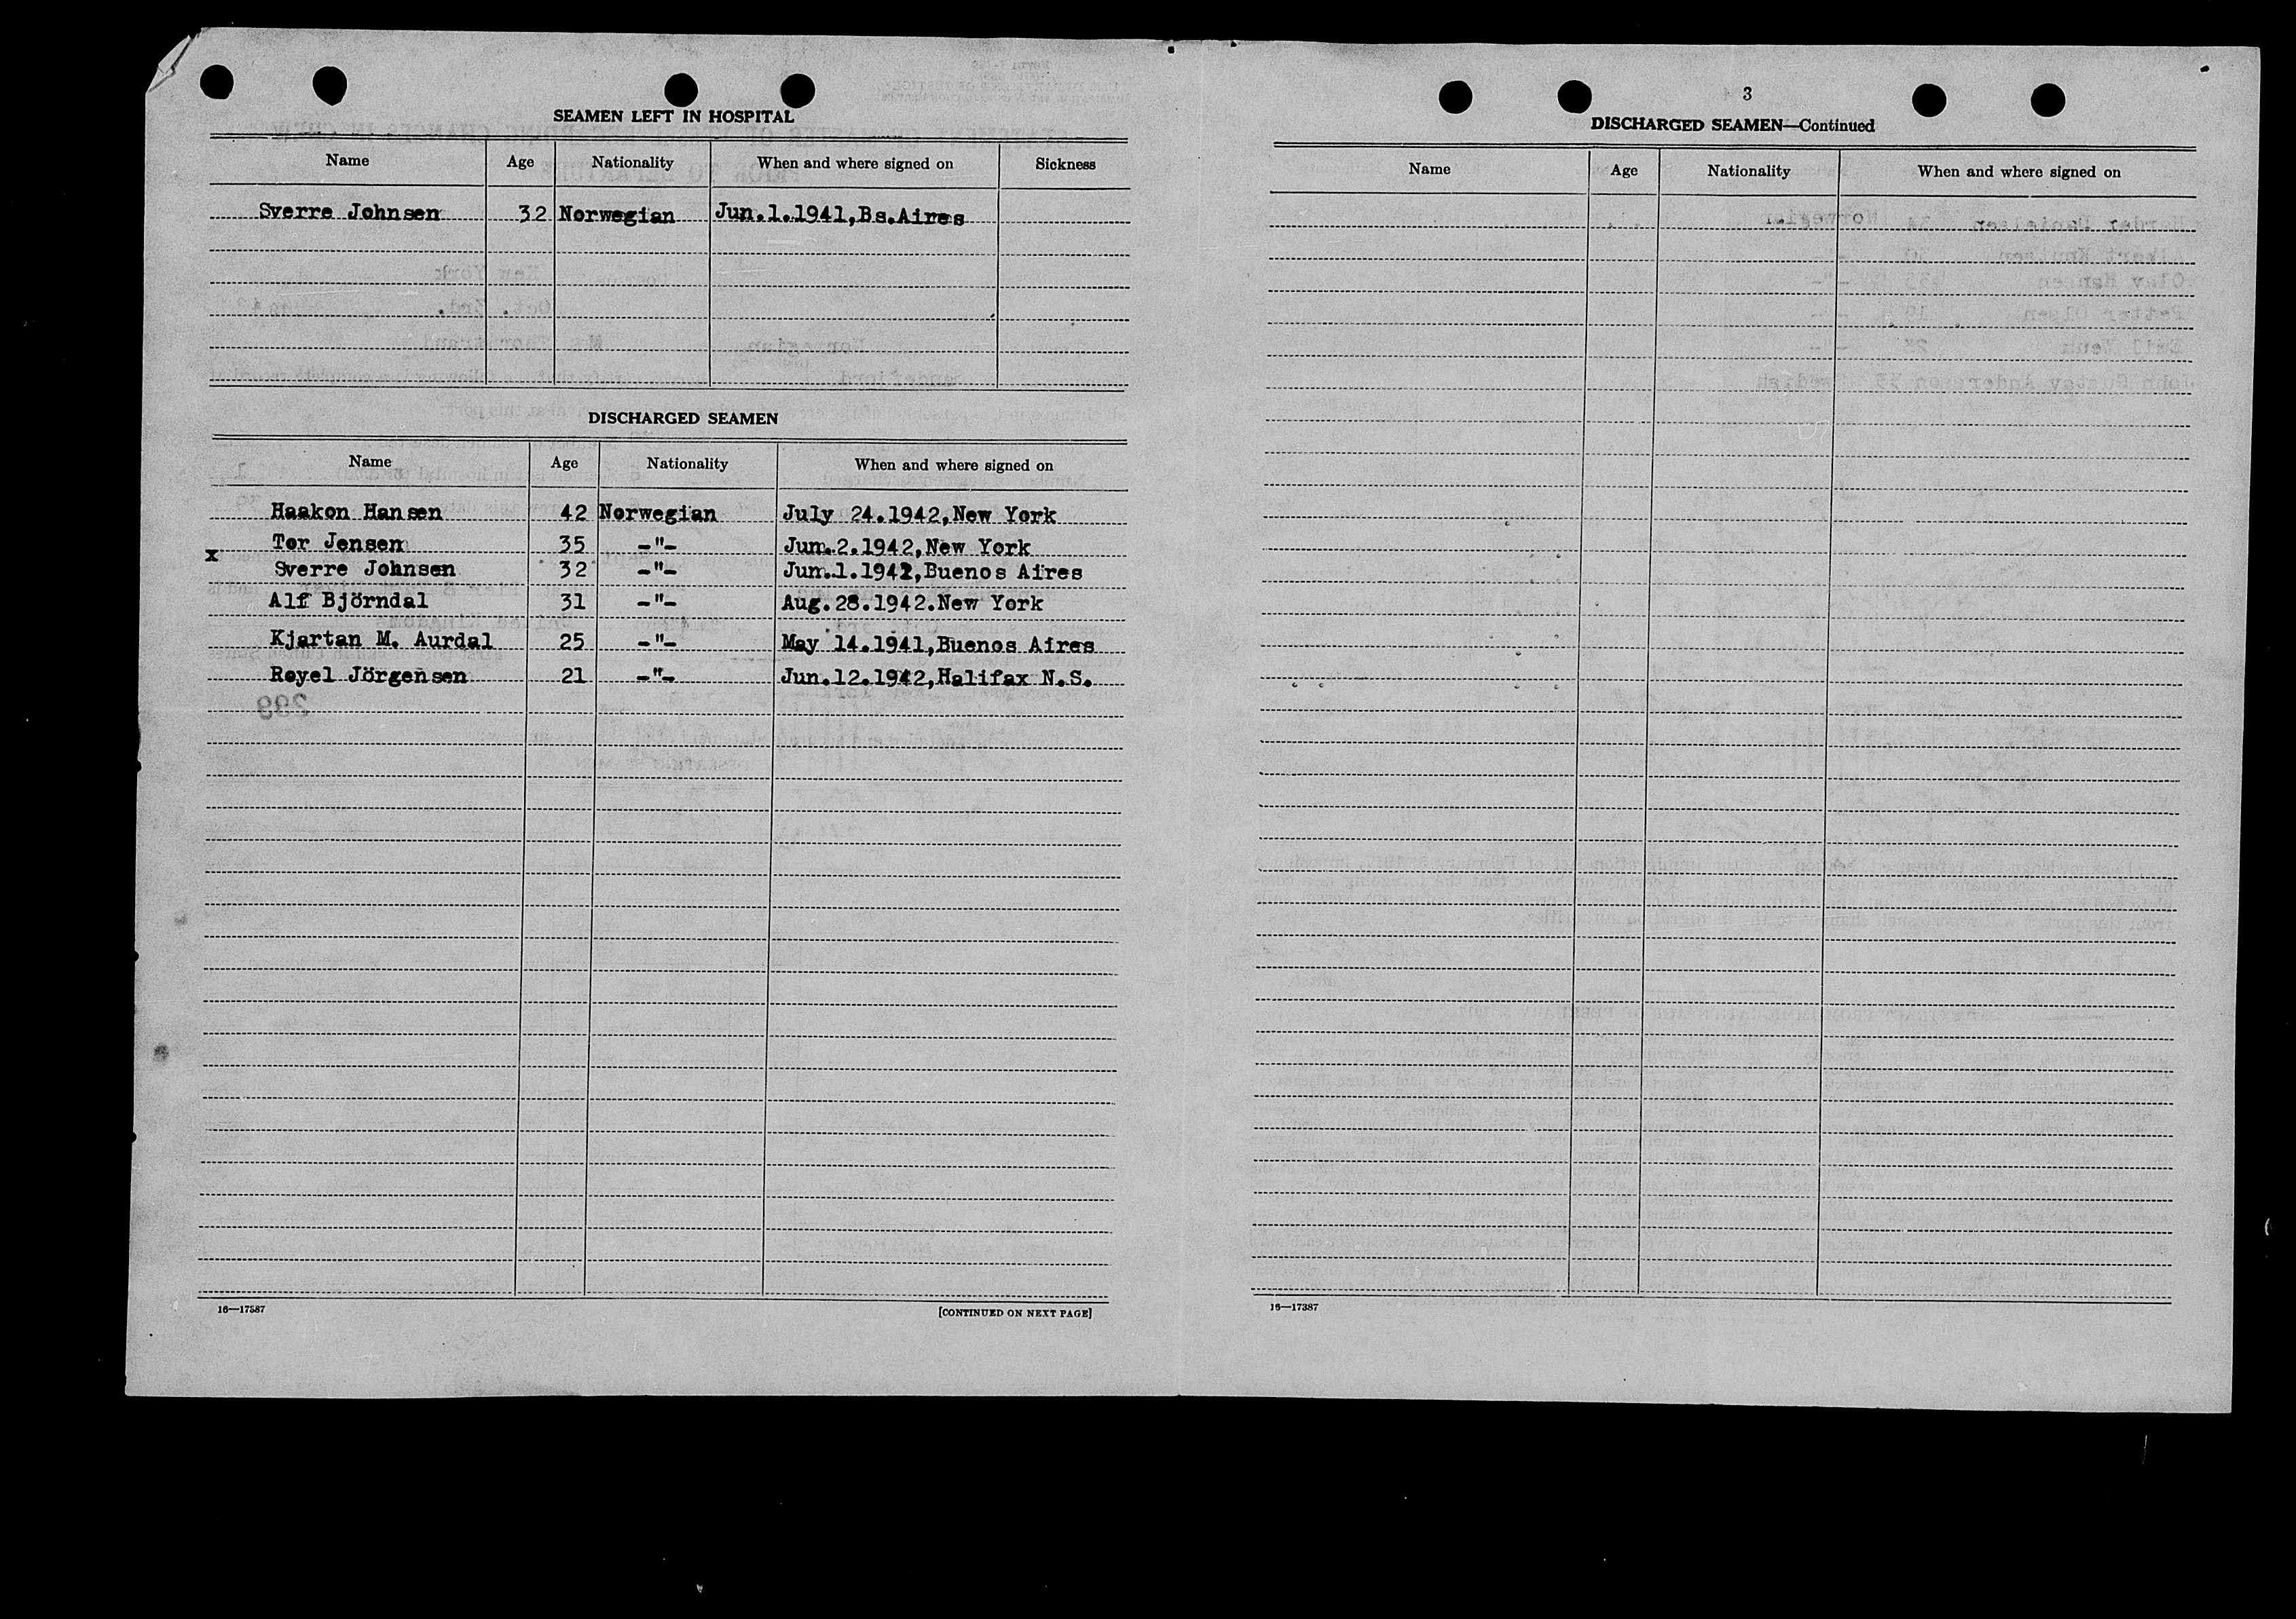 SEAMEN LEFT IN HOSPITAL
Name Age Nationality When and where signed on Sickness
Sverre Johnsen 32 Norwegian Jun.1.1941,Bs.Aires
DISCHARGED SEAMEN
Name Age Nationality When and where signed on
Haakon Hansen 42 Norwegian July 24.1942,New York
Tor Jensen 35 -"- Jun.2.1942,New York
x Sverre Johnsen 32 -"- Jun.1.1941,Buenos Aires
Alf Björndal 31 -"- Aug.28.1942.New York
Kjartan M. Aurdal 25 -"- May 14.1941,Buenos Aires
Reyel Jörgensen 21 -"- Jun.12.1942,Halifax N.S.
299
16—17387 [CONTINUED ON NEXT PAGE]
3
DISCHARGED SEAMEN—Continued
Name Age Nationality When and where signed on
16—17387